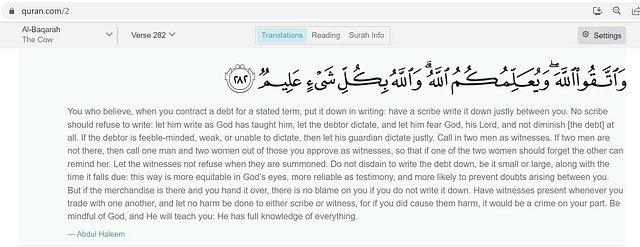 quran.com/2
Al-Baqarah
The Cow
Verse 282
Translations Reading Surah Info
Settings
وَٱتَّقُوا۟ ٱللَّهَ ۖ وَيُعَلِّمُكُمُ ٱللَّهُ ۗ وَٱللَّهُ بِكُلِّ شَىْءٍ عَلِيمٌۭ ٢٨٢
You who believe, when you contract a debt for a stated term, put it down in writing: have a scribe write it down justly between you. No scribe
should refuse to write: let him write as God has taught him, let the debtor dictate, and let him fear God, his Lord, and not diminish [the debt] at
all. If the debtor is feeble-minded, weak, or unable to dictate, then let his guardian dictate justly. Call in two men as witnesses. If two men are
not there, then call one man and two women out of those you approve as witnesses, so that if one of the two women should forget the other can
remind her. Let the witnesses not refuse when they are summoned. Do not disdain to write the debt down, be it small or large, along with the
time it falls due: this way is more equitable in God's eyes, more reliable as testimony, and more likely to prevent doubts arising between you.
But if the merchandise is there and you hand it over, there is no blame on you if you do not write it down. Have witnesses present whenever you
trade with one another, and let no harm be done to either scribe or witness, for if you did cause them harm, it would be a crime on your part. Be
mindful of God, and He will teach you: He has full knowledge of everything.
— Abdul Haleem